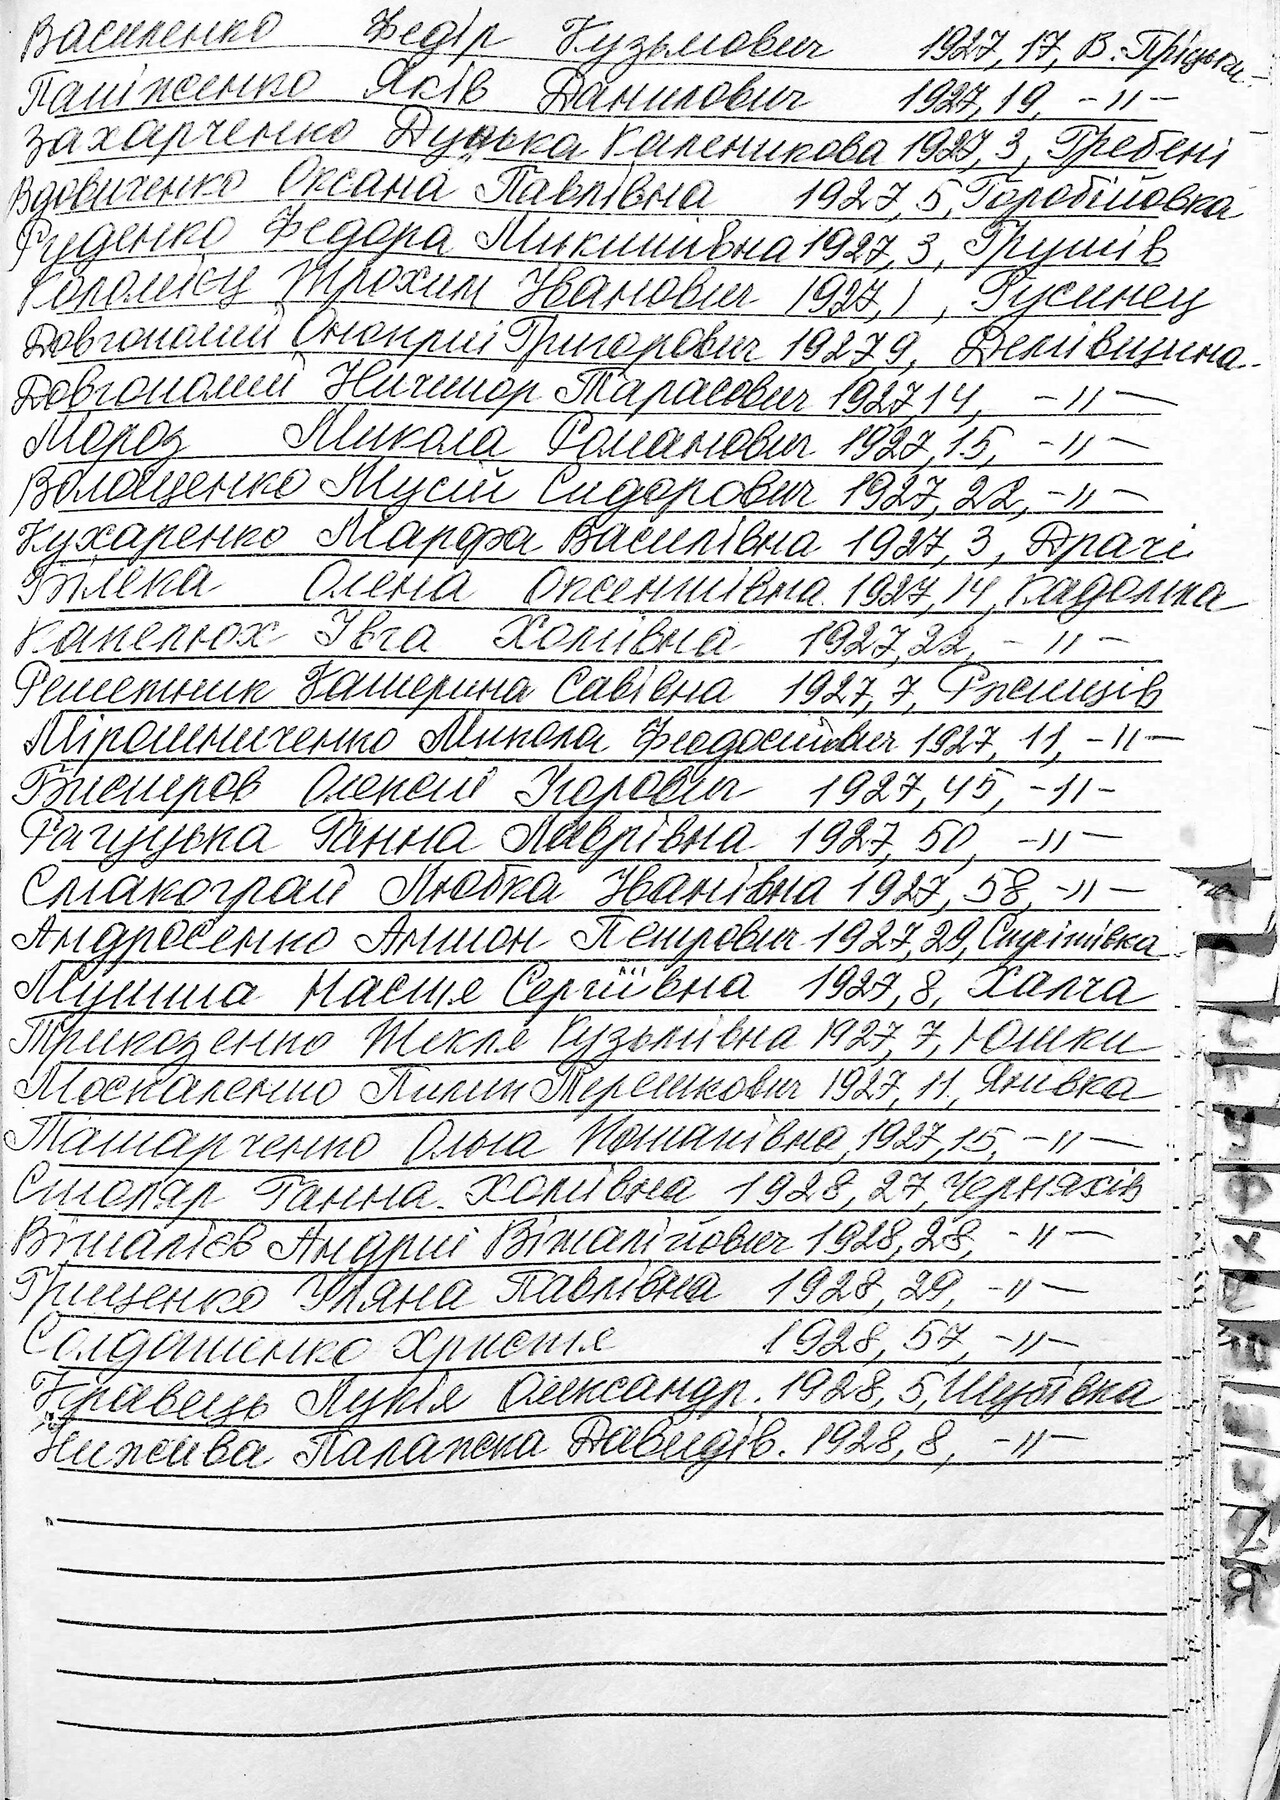 Василенко Федір Кузьмович 1927, 17, В. Пріцьки
Паніженко Яків Данилович 1927, 19, -"-
Захарченко Дунька Каленикова 1927, 3, Гребені
Вдовиченко Оксана Павлівна 1927, 5, Горобіївка
Руденко Федора Микитівна 1927, 3, Грушів
Коломієць Трохим Іванович 1927, 1, Гусинец
Довгополий Онопрій Григорович 1927, 9, Демівщина
Довгополий Ничипор Тарасович 1927, 14, -"-
Мороз Микола Романович 1927, 15, -"-
Волощенко Мусій Сидорович 1927, 22, -"-
Кухаренко Марфа Василівна 1927, 3, Драчі
Білека Олена Оксентіївна 1927, 14, Кадомка
Капелюх Івга Хомівна 1927, 22, -"-
Решетник Катерина Савівна 1927, 7, Ржищів
Мірошниченко Микола Феодосійович 1927, 11, -"-
Бистров Олексій Ігорович 1927, 45, -"-
Рагуцька Ганна Лаврівна 1927, 50, -"-
Смакограй Любка Іванівна 1927, 58, -"-
Андросенко Антон Петрович 1927, 29, Стрітівка
Мушта Настя Сергіївна 1927, 8, Халча
Трикозенко Текля Кузьмівна 1927, 7, Юшки
Москаленко Пилип Терешкович 1927, 11, Янівка
Татарченко Ольга Потапівна, 1927, 15, -"-
Столяр Ганна Хомівна 1928, 27, Черняхів
Віталієв Андрій Віталійович 1928, 28, -"-
Грищенко Уляна Павлівна 1928, 29, -"-
Солдатенко Христя 1928, 57, -"-
Кравець Лукія Олександр. 1928, 5, Шубівка
Нижива Палажка Давидів. 1928, 8, -"-